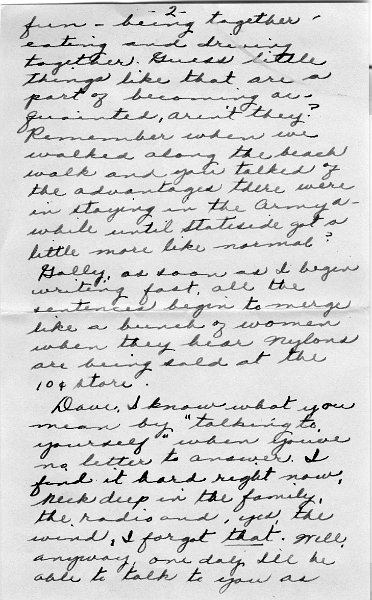 -2-
fun - being together -
eating and driving
together. Guess little
things like that are a
part of becoming ac-
quainted, aren't they?
Remember when we
walked along the beach
walk and you talked of
the advantages there were
in staying in the Army a-
while until stateside got a
little more like normal?
Golly, as soon as I begin
writing fast, all the
sentences begin to merge
like a bunch of women
when they hear nylons
are being sold at the
10¢ store.
Dave, I know what you
mean by "talking to
yourself" when you've
no letter to answer. I
find it hard right now,
neck deep in the family,
the radio and, yes, the
wind, I forgot that. Well,
anyway, one day I'll be
able to talk to you as